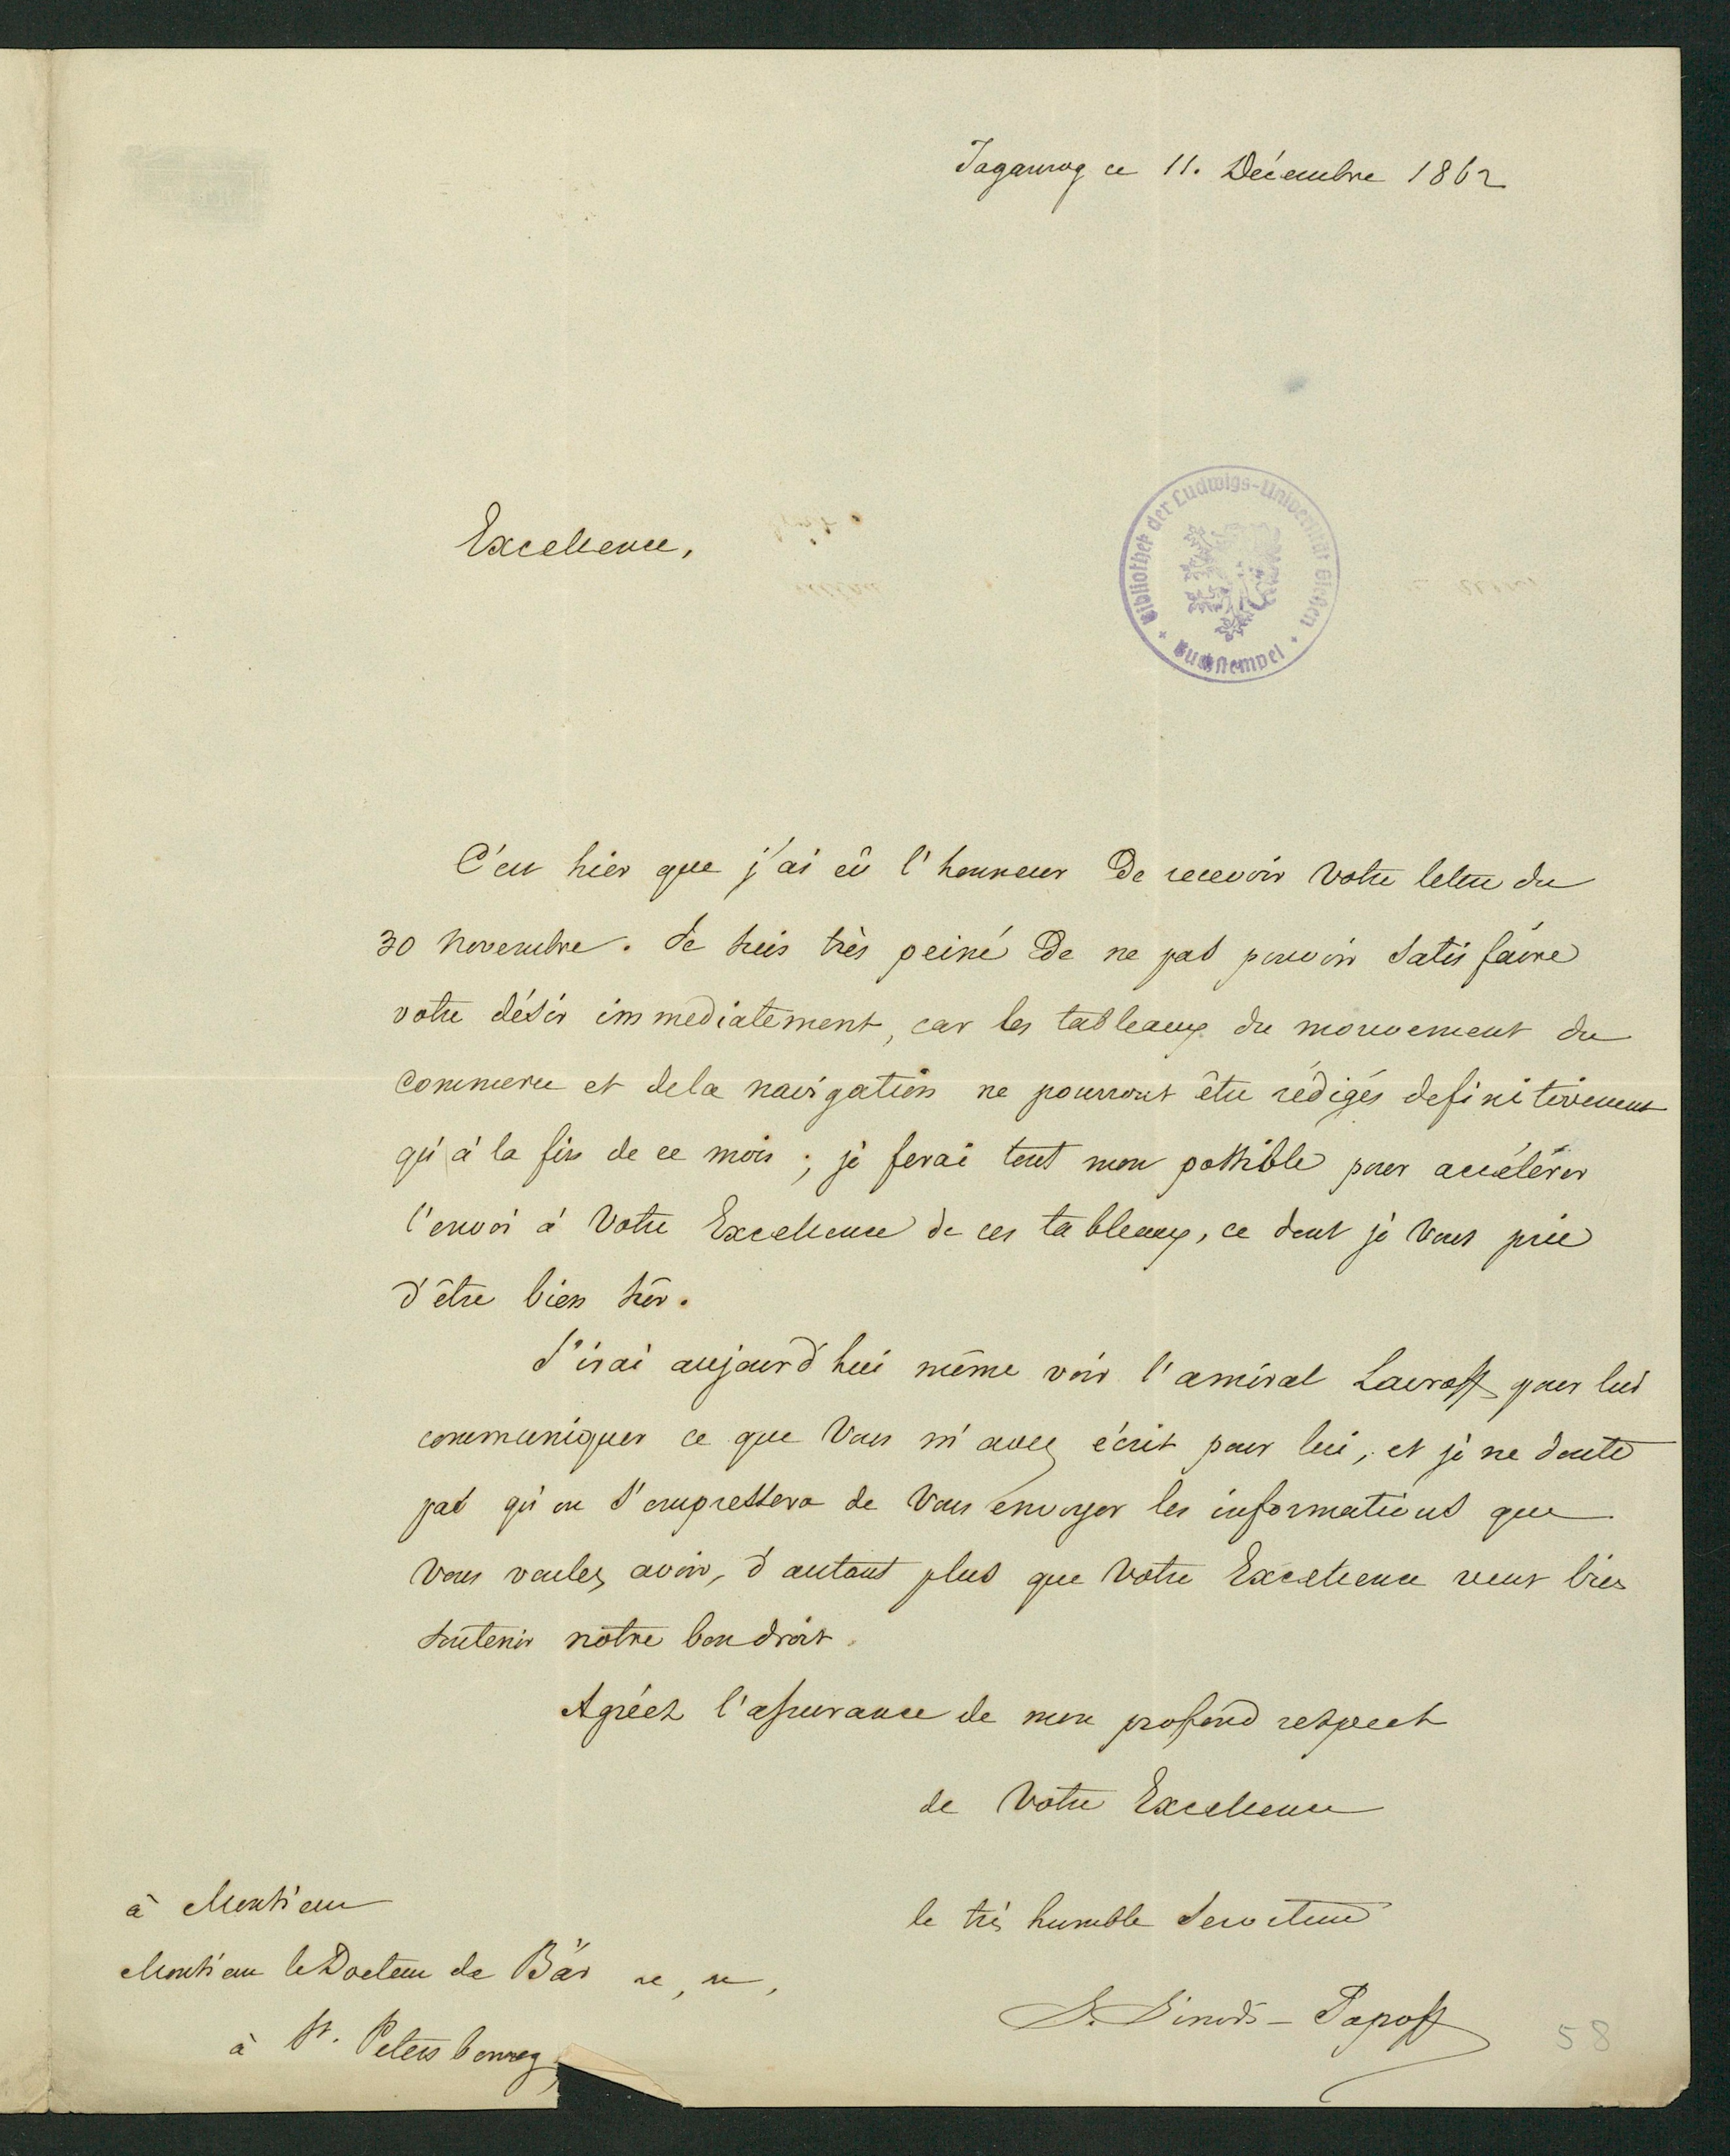 Taganrog ce 11. Décembre 1862
Excellence,
Bibliothek der Ludwigs-Universität Gießen
Buchstempel
C'est hier que j'ai eû l'honneur de recevoir Votre lettre du
30 Novembre. Je suis très peiné de ne pas pouvoir satisfaire
votre désir immediatement, car les tableaux du mouvement du
commerce et dela navigation ne pourront être rédigés definitivement
qu'à la fin de ce mois; je ferai tout mon possible pour accélérer
l'envoi à Votre Excellence de ces tableaux, ce dont je Vous prie
d'être bien sûr.
J'irai aujourd'hui même voir l'amiral Lavroff pour lui
communiquer ce que Vous m'avez écrit pour lui, et je ne doute
pas qu'on s'empressera de Vous envoyer les informations que
Vous voulez avoir, d'autant plus que Votre Excellence veut bien
soutenir notre bon droit.
Agréez l'assurance de mon profond respect
de Votre Excellence
le très humble serviteur
Popoff
à Monsieur
Monsieur le Docteur de Bär
à St. Petersbourg
58